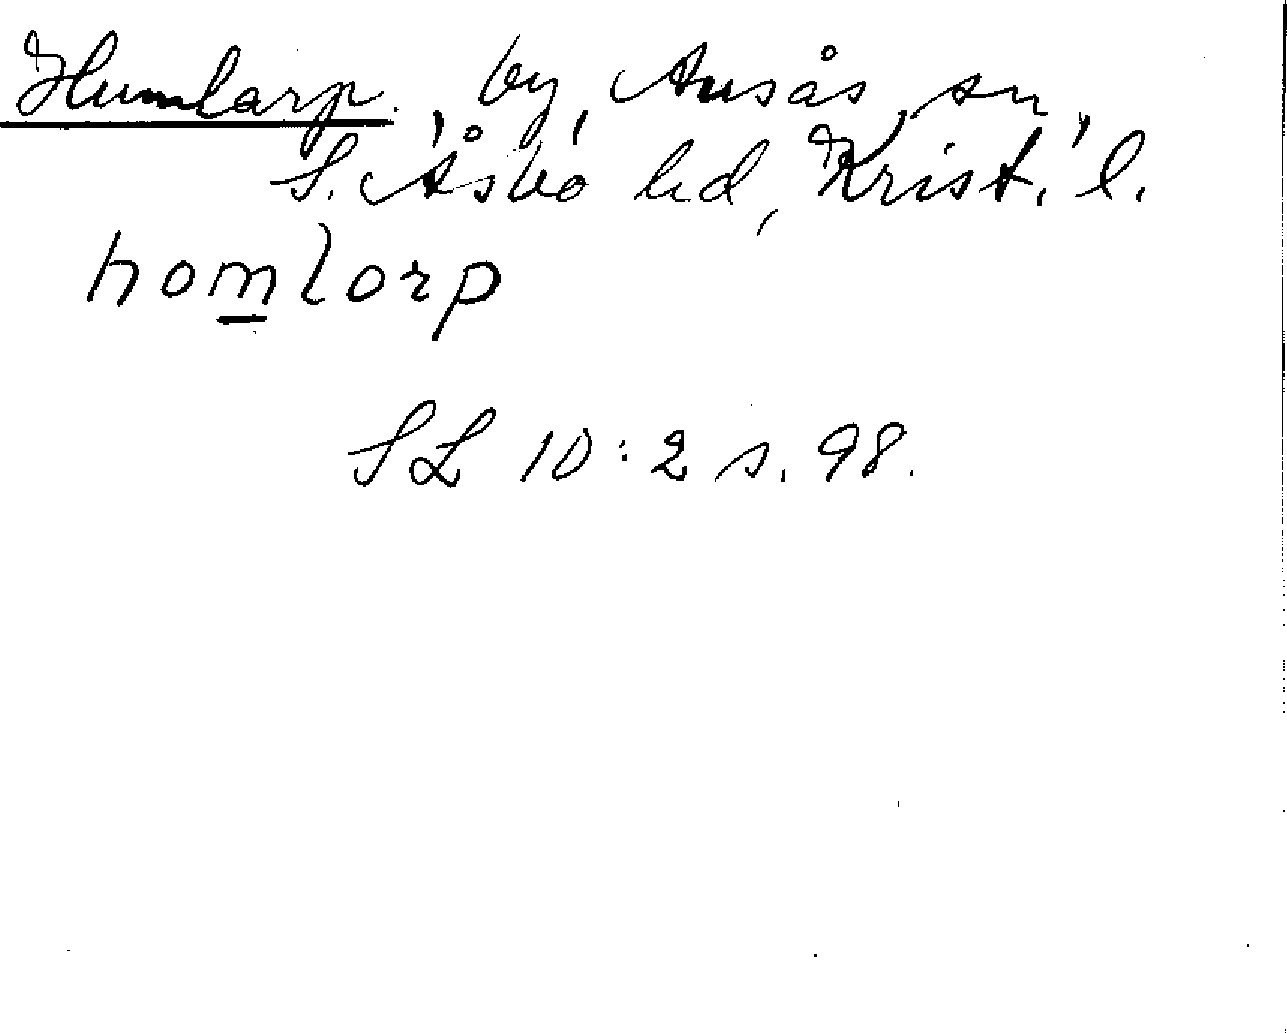 Humlarp, by, Ausås sn,
S. Åsbo hd, Krist. l.
homlorp
SL 10:2 s. 98.